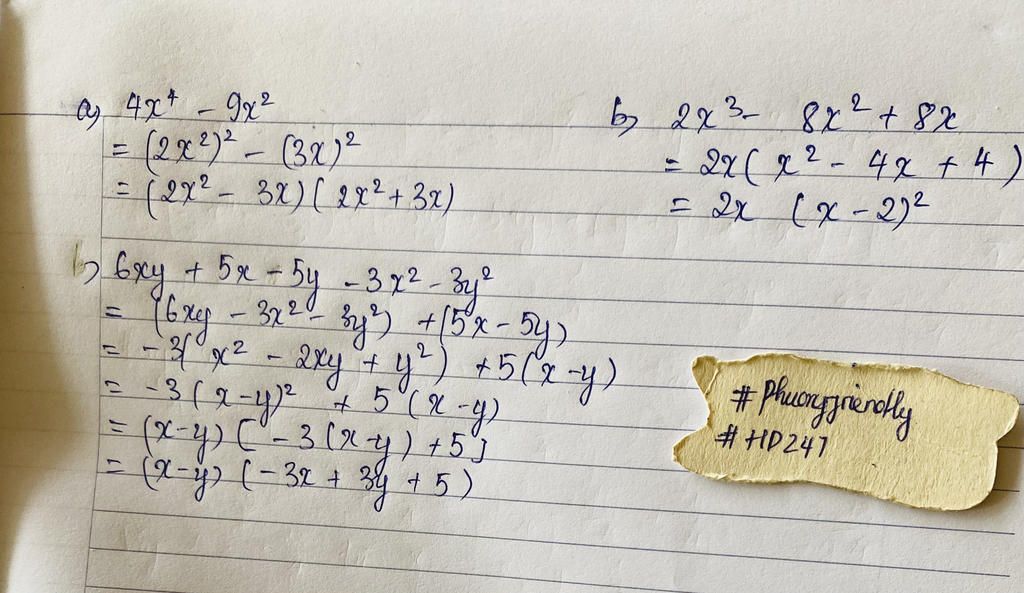 a) 4x⁴ - 9x²
= (2x²)² - (3x)²
= (2x² - 3x)(2x² + 3x)
b) 2x³ - 8x² + 8x
= 2x(x² - 4x + 4)
= 2x (x - 2)²
b) 6xy + 5x - 5y - 3x² - 3y²
= (6xy - 3x² - 3y²) + (5x - 5y)
= -3(x² - 2xy + y²) + 5(x - y)
= -3(x - y)² + 5(x - y)
= (x - y)[-3(x - y) + 5]
= (x - y)(-3x + 3y + 5)
# Phuongfriendly
# HD247